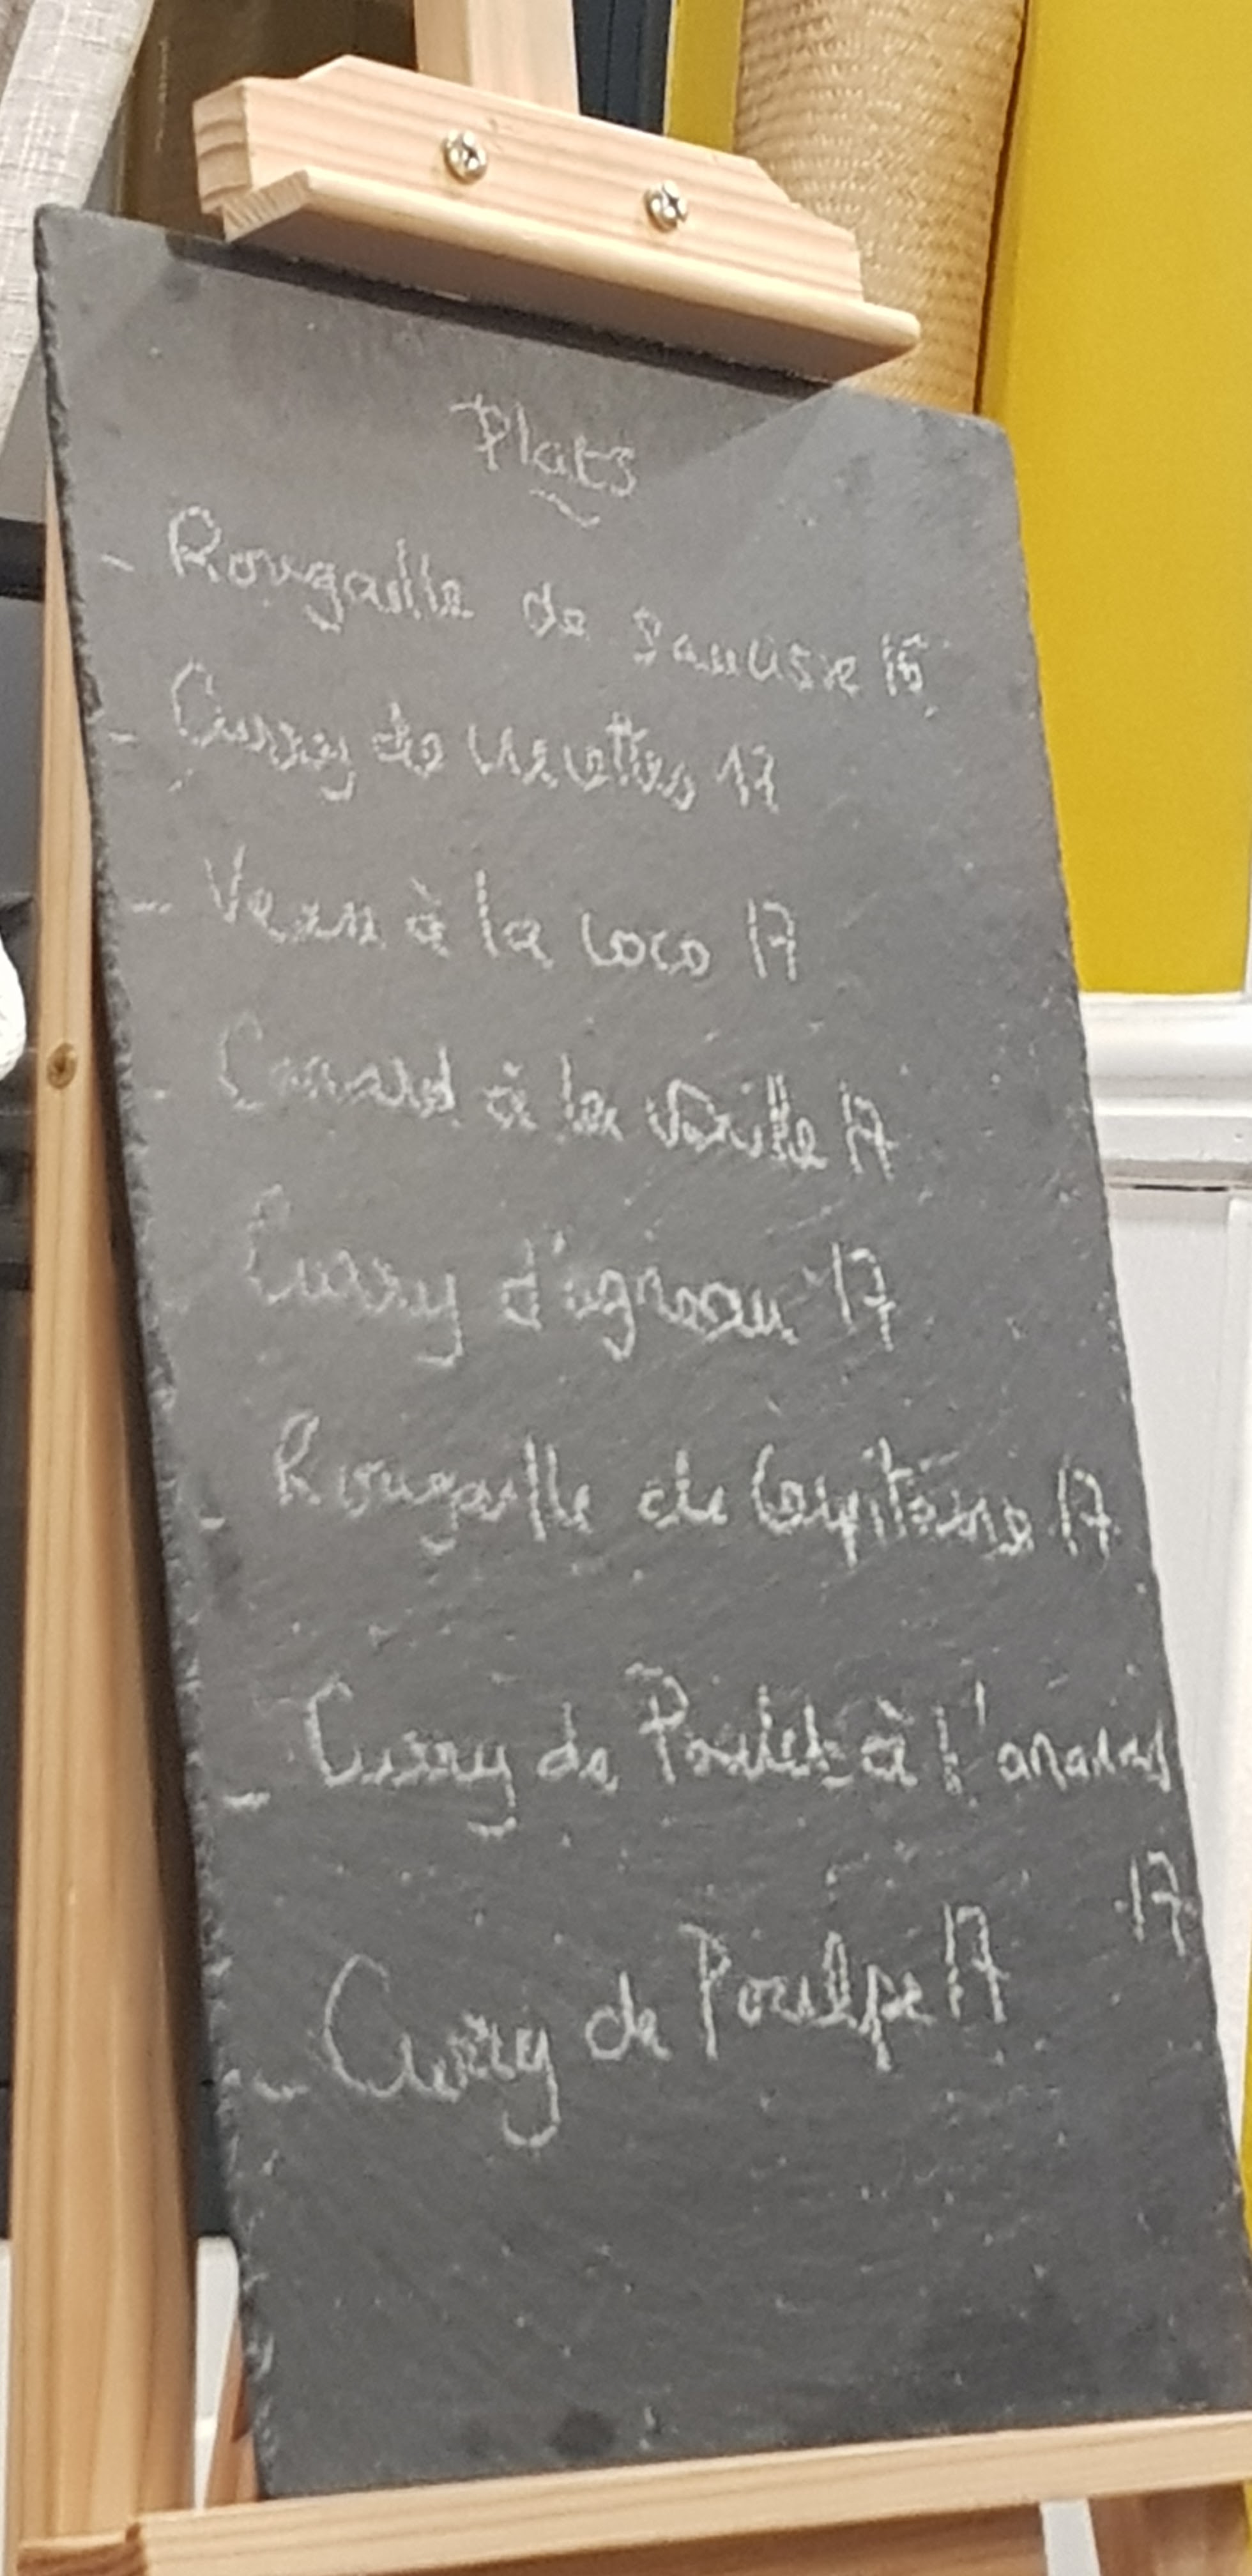 Plats
- Rougaille de saucisse 15
- Curry de crevettes 17
- Veau à la coco 17
- Canard à la vanille 17
Curry d'agneau 17
- Rougaille de Capitaine 17
- Curry de Poulet à l'ananas
17
- Curry de Poulpe 17